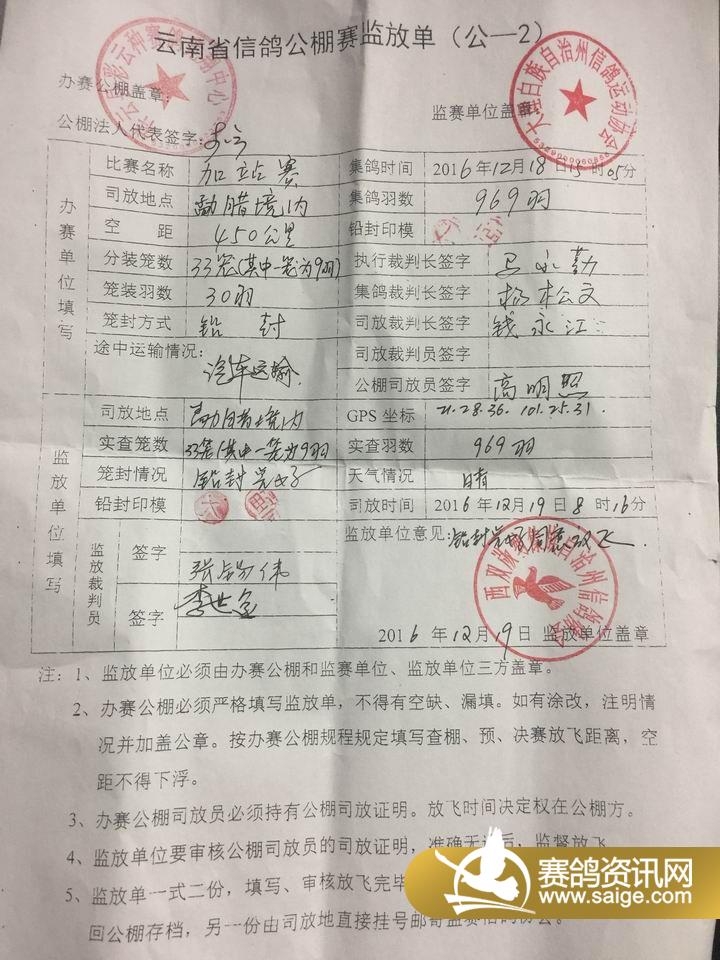 云南省信鸽公棚赛监放单（公—2）
办赛公棚盖章：
监赛单位盖章
公棚法人代表签字：
办赛单位填写
比赛名称 加站赛 集鸽时间 2016年12月18日15时05分
司放地点 勐腊境内 集鸽羽数 969羽
空距 450公里 铅封印模
分装笼数 33笼(其中一笼为9羽) 执行裁判长签字 马永勤
笼装羽数 30羽 集鸽裁判长签字 杨松文
笼封方式 铅封 司放裁判长签字 钱永江
途中运输情况： 汽车运输 司放裁判员签字
公棚司放员签字 高明照
监放单位填写
司放地点 勐腊境内 GPS坐标 21.28.36. 101.25.31.
实查笼数 33笼(其中一笼为9羽 实查羽数 969羽
笼封情况 铅封完好 天气情况 晴
铅封印模 司放时间 2016年12月19日8时16分
监放裁判员 签字 监放单位意见：铅封完好同意放飞
签字 李世金
2016年12月19日 监放单位盖章
注：1、监放单位必须由办赛公棚和监赛单位、监放单位三方盖章。
2、办赛公棚必须严格填写监放单，不得有空缺、漏填。如有涂改，注明情
况并加盖公章。按办赛公棚规程规定填写查棚、预、决赛放飞距离，空
距不得下浮。
3、办赛公棚司放员必须持有公棚司放证明。放飞时间决定权在公棚方。
4、监放单位要审核公棚司放员的司放证明，准确无误后，监督放飞
5、监放单一式二份，填写、审核放飞完毕
回公棚存档，另一份由司放地直接挂号邮寄监赛信鸽协会。
赛鸽资讯网
www.saige.com